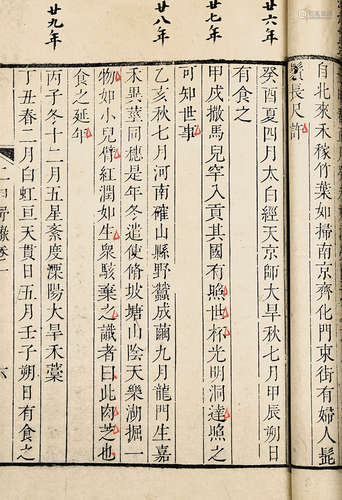 自北來禾稼竹葉如掃南京齊化門東街有婦人髭
鬚長尺許
廿六年
癸酉夏四月太白經天京師大旱秋七月甲辰朔日
有食之
廿七年
甲戌撒馬兒罕入貢其國有照世杯光明洞達照之
可知世事
廿八年
乙亥秋七月河南確山縣野蠶成繭九月龍門生嘉
禾異莖同穗是年冬遣使脩坡塘山陰天樂湖掘一
物如小兒臂紅潤如生衆駭棄之識者曰此肉芝也
食之延年
廿九年
丙子冬十二月五星紊度溧陽大旱禾藁
丁丑春二月白虹亘天貫日五月壬子朔日有食之
二
卷一
六